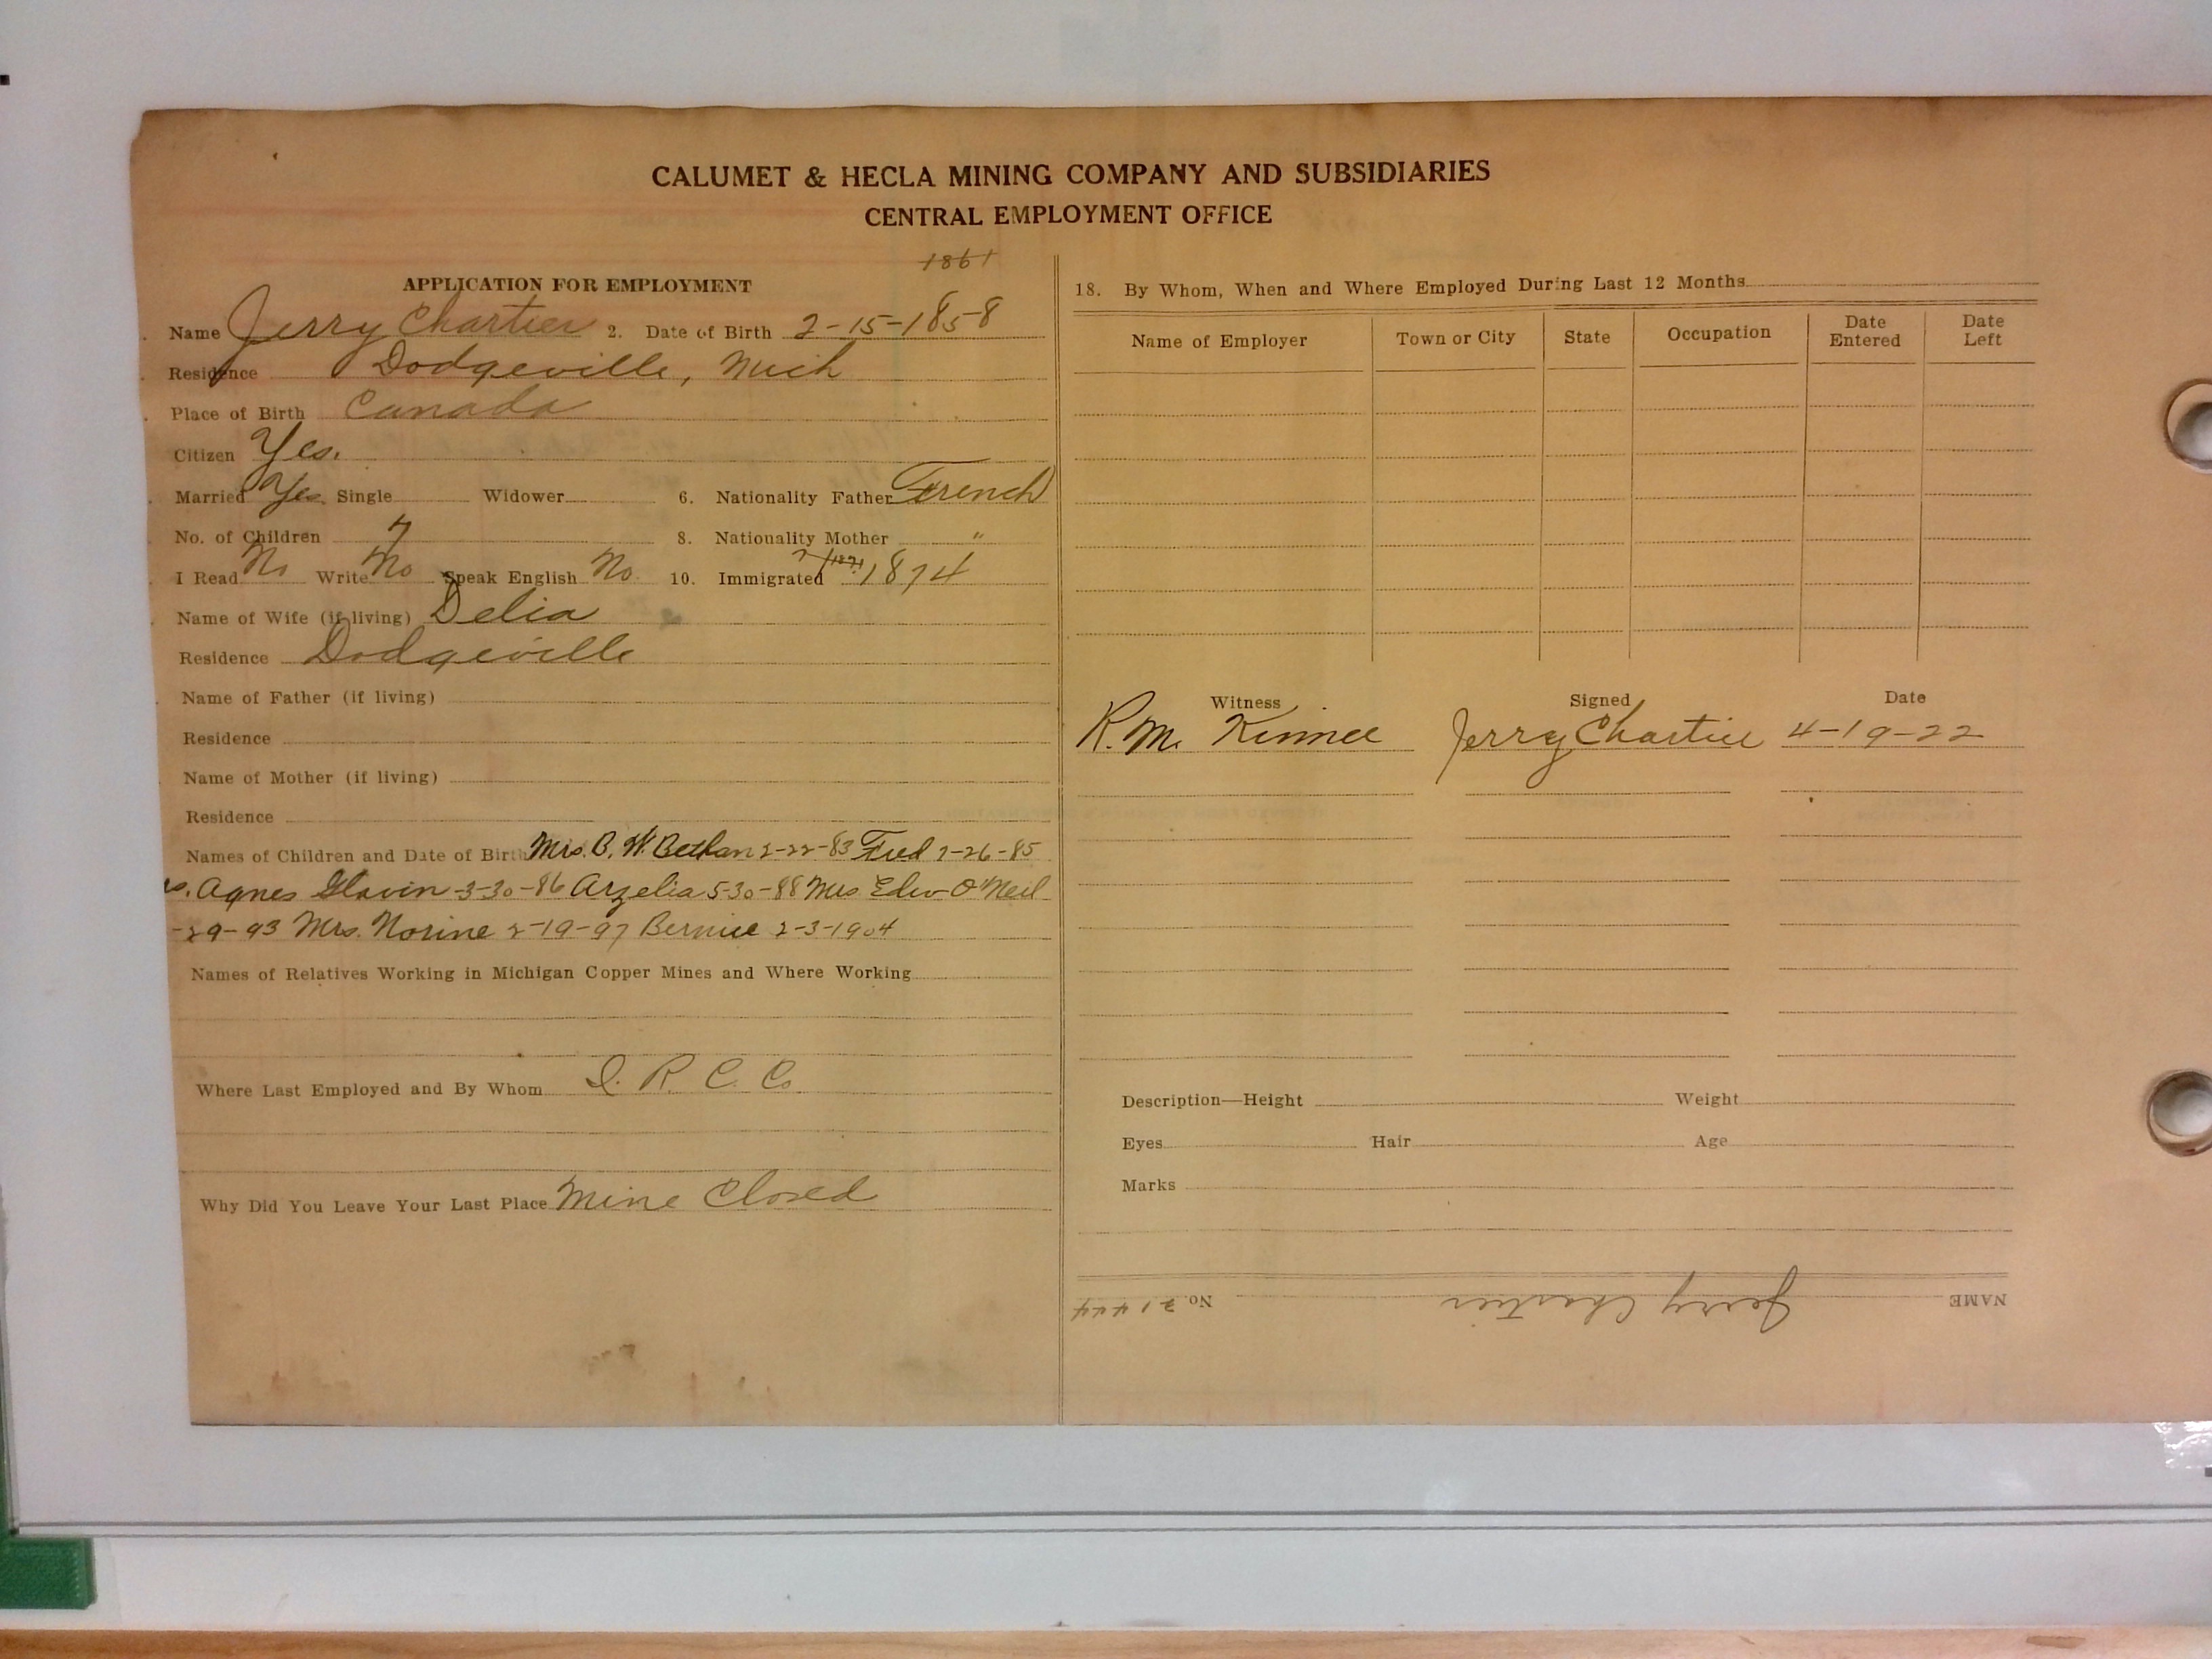 CALUMET & HECLA MINING COMPANY AND SUBSIDIARIES
CENTRAL EMPLOYMENT OFFICE
1861
APPLICATION FOR EMPLOYMENT
Name Jerry Chartier 2. Date of Birth 2-15-1858
Residence Dodgeville, Mich
Place of Birth Canada
Citizen Yes.
Married Yes Single Widower 6. Nationality Father French
No. of Children 7 8. Nationality Mother "
I Read No Write No Speak English No 10. Immigrated 1874
Name of Wife (if living) Delia
Residence Dodgeville
Name of Father (if living)
Residence
Name of Mother (if living)
Residence
Names of Children and Date of Birth Mrs. B. W. 2-22-83 Fred 2-26-85
s. Agnes Slavin 3-30-86 Arzelia 5-30-88 Mrs. Edw O'Neil
-29-93 Mrs. Norine 2-19-97 Bernice 2-3-1904
Names of Relatives Working in Michigan Copper Mines and Where Working
Where Last Employed and By Whom I. R. C. Co.
Why Did You Leave Your Last Place Mine Closed
18. By Whom, When and Where Employed During Last 12 Months
Name of Employer Town or City State Occupation Date Entered Date Left
Witness Signed Date
R. M. Kinnee Jerry Chartier 4-19-22
Description—Height Weight
Eyes Hair Age
Marks
NAME Jerry Chartier No. 21444